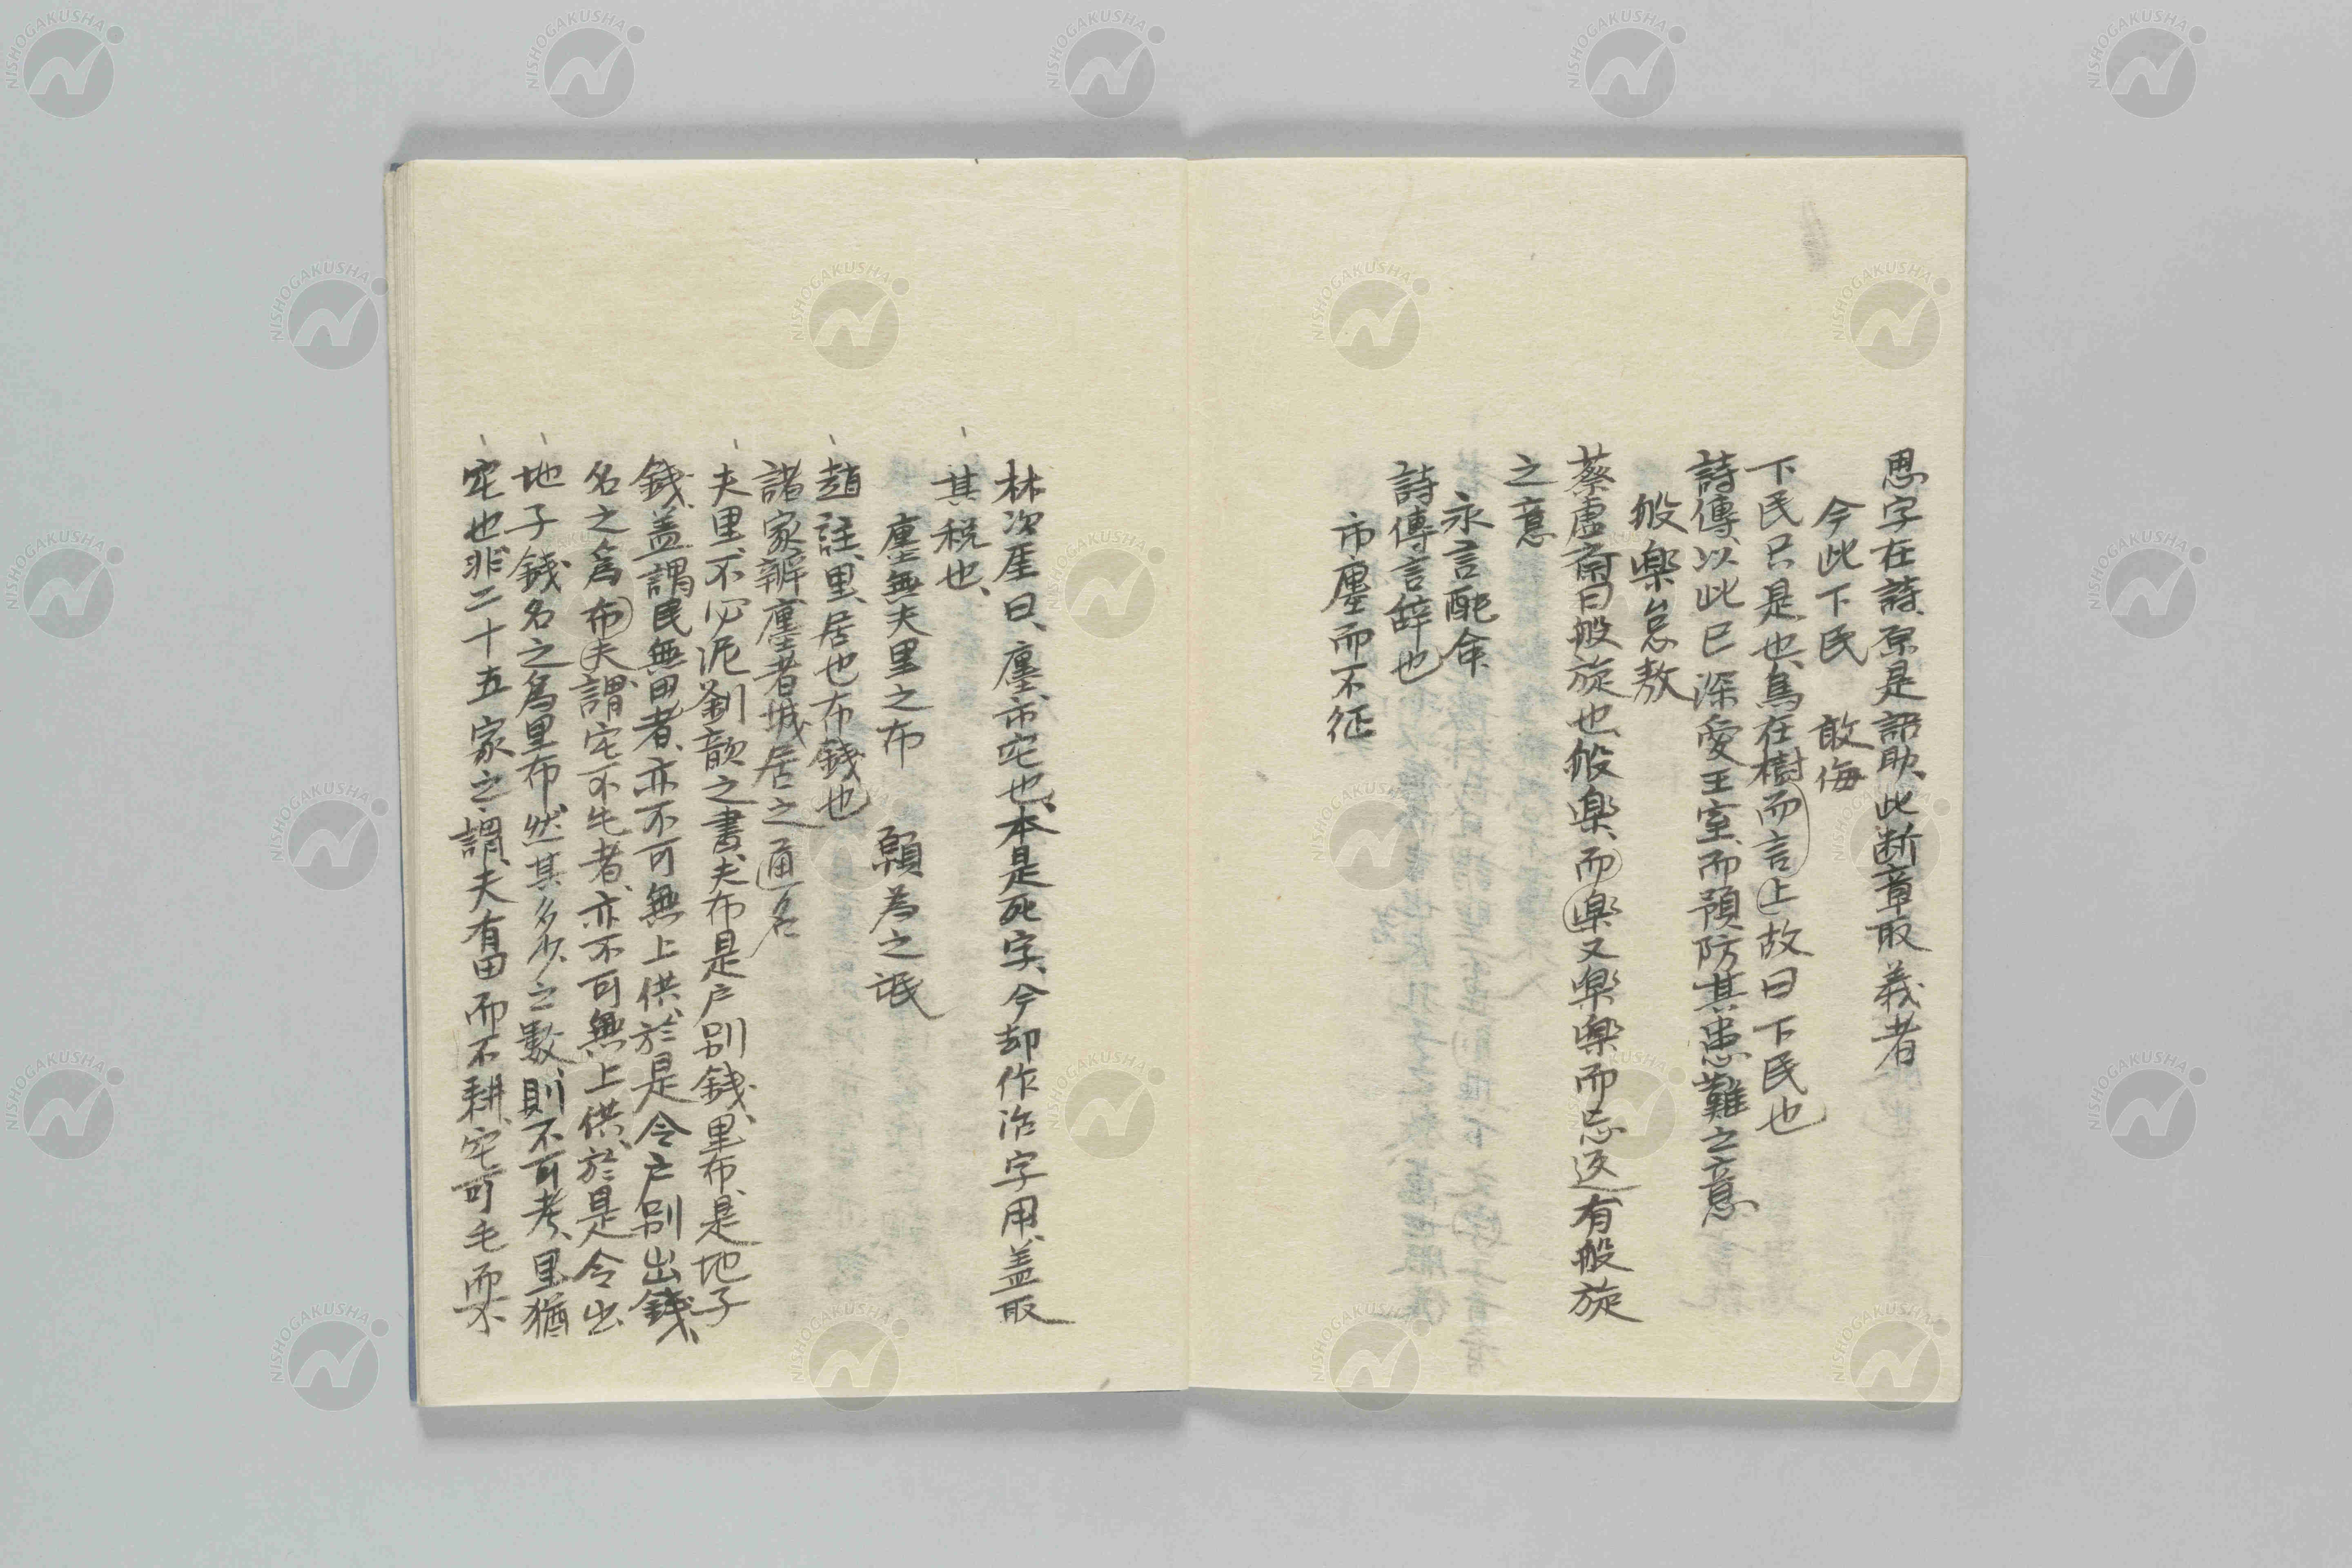 思字在詩、原是語助、此断章取義者
今此下民　敢侮
下民只是也、鳥在樹而言上故曰下民也
詩傳、以此已深愛王室、而預防其患難之意
般樂怠敖
蔡虚齋曰般旋也、般樂、而樂又樂樂而忘返有般旋
之意
永言配命
詩傳言辞也
市廛而不征
林次崖曰、廛、市宅也、本是死字、今却作活字用、盖取
其税也、
廛無夫里之布　願為之氓
趙註、里、居也布錢也
諸家辨廛者城居之通名
夫里不必泥劉歆之書、夫布是戸別錢、里布是地子
錢、盖謂民無田者、亦不可無上供、於是令戸別出錢、
名之為布夫謂宅不毛者、亦不可無上供、於是令出
地子錢名之為里布、然其多少之數、則不可考、里猶
宅也非二十五家之謂、夫有田而不耕、宅可毛而不
NISHOGAKUSHA